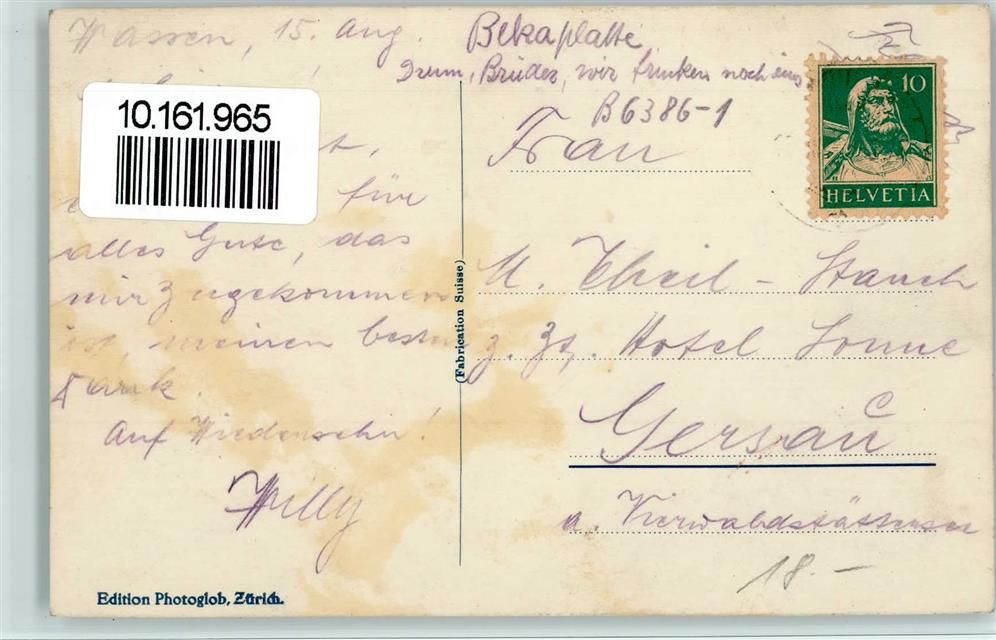 Wassen, 15. Aug.
Bekaplatte
Drum, Brüder, wir trinken noch eins
B 6386-1
10.161.965
für
alles Gute, das
mir zugekommen
ist, meinen besten
Dank.
Auf Wiedersehn!
Willy
Edition Photoglob, Zürich.
(Fabrication Suisse)
10
HELVETIA
Frau
M. Theil - Stauch
z. Zt. Hotel Sonne
Gersau
a. Vierwaldstättersee
18.–